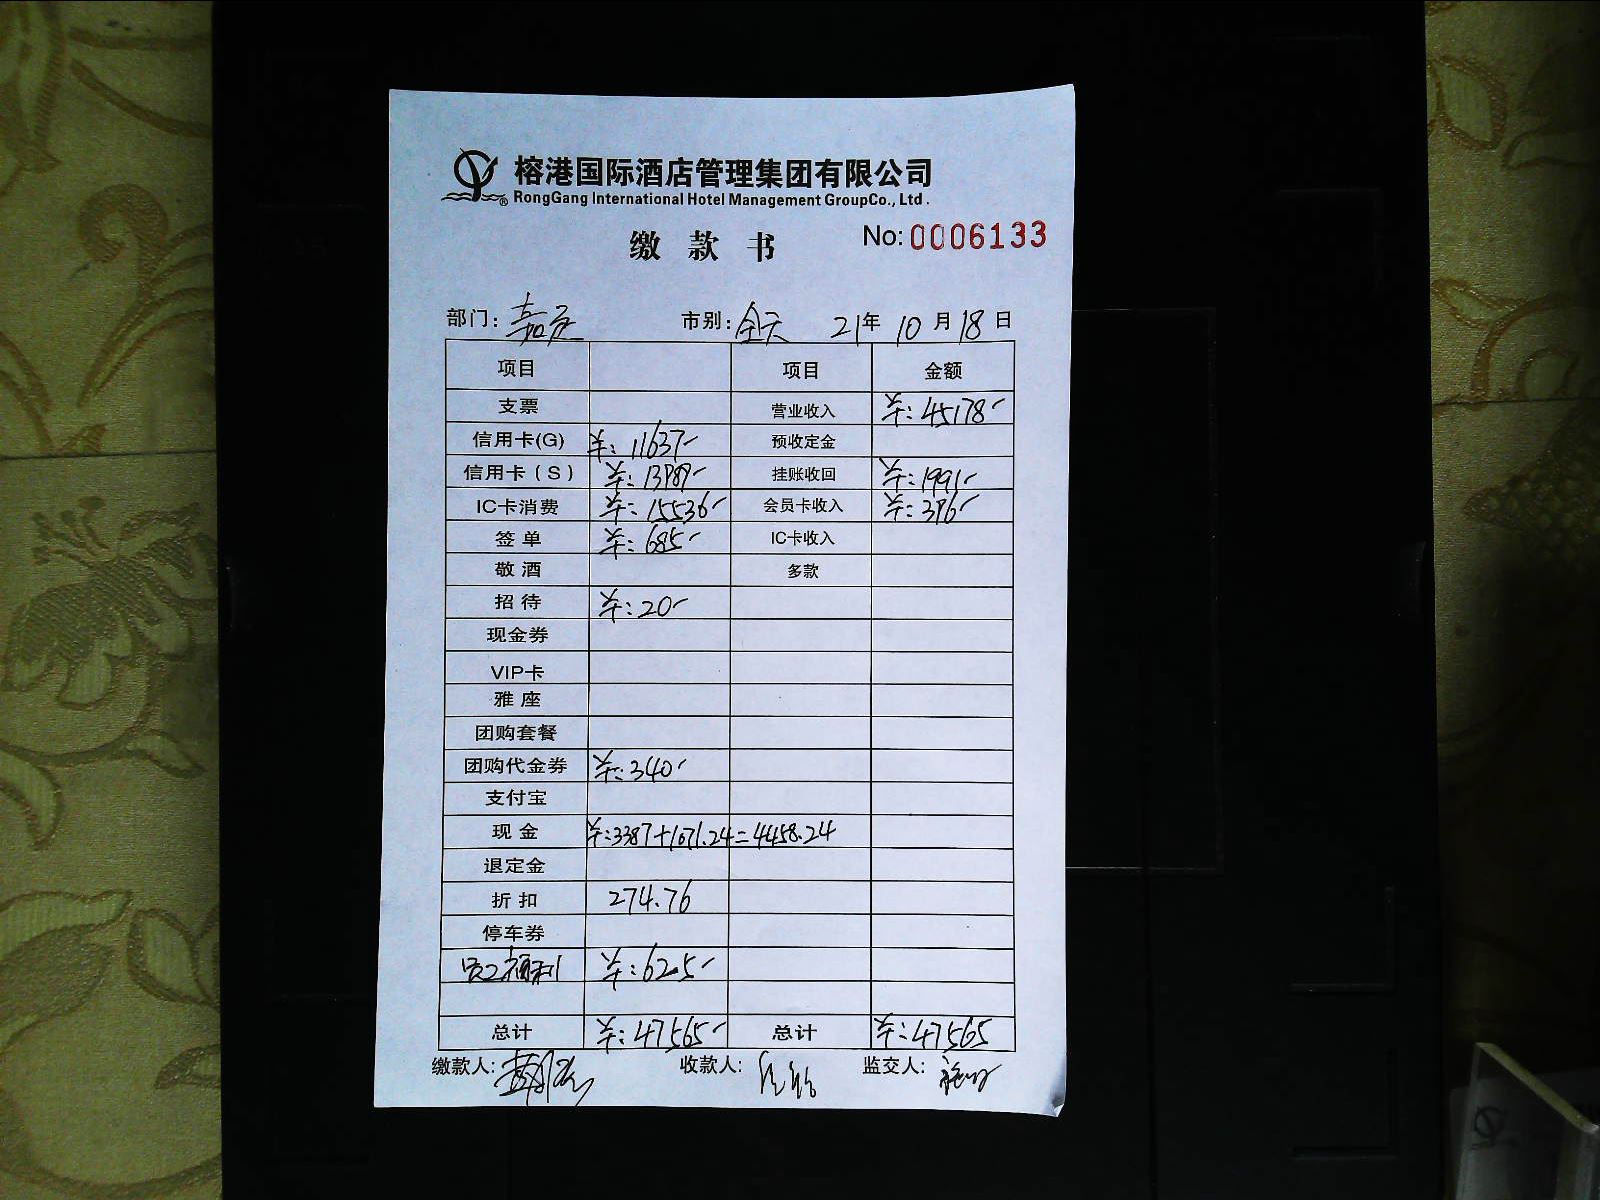 榕港国际酒店管理集团有限公司
® RongGang International Hotel Management GroupCo., Ltd .
缴 款 书 No: 0006133
部门: 嘉 市别: 全天 21年 10 月 18 日
项目 项目 金额
支票 营业收入 ¥:45178-
信用卡(G) ¥:11637- 预收定金
信用卡(S) ¥:13989- 挂账收回 ¥:1991-
IC卡消费 ¥:15536- 会员卡收入 ¥:396-
签单 ¥:685- IC卡收入
敬酒 多款
招待 ¥:20-
现金券
VIP卡
雅座
团购套餐
团购代金券 ¥:340-
支付宝
现金 ¥:3387+1071.24=4458.24
退定金
折扣 274.76
停车券
员工福利 ¥:625-
总计 ¥:47565- 总计 ¥:47565
缴款人: 收款人: 监交人: